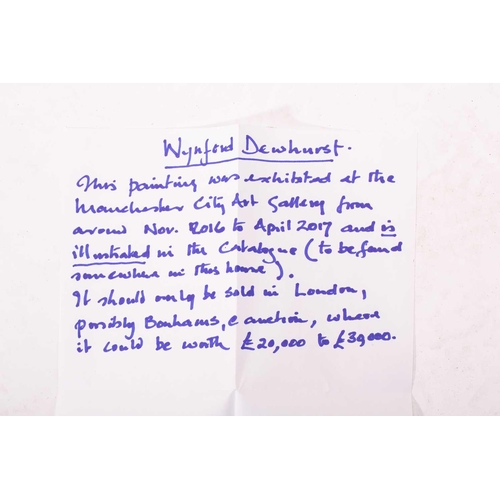 Wynford Dewhurst.
This painting was exhibited at the
Manchester City Art Gallery from
around Nov. 2016 to April 2017 and is
illustrated in the Catalogue (to be found
somewhere in this house).
It should only be sold in London,
possibly Bonhams, auction, where
it could be worth £20,000 to £30,000.